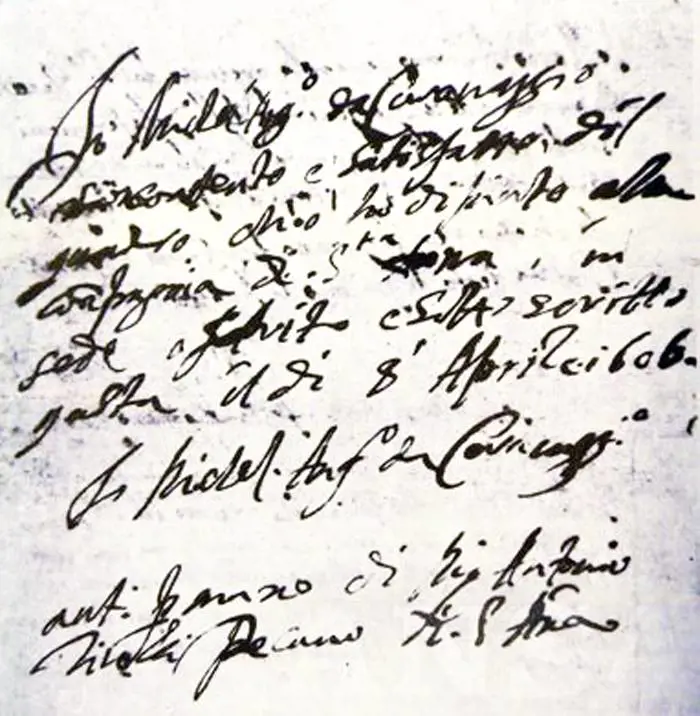 Io Michel Ang.o da Caravaggio
mi contento e satisfatto del
quadro ch'io ho dipinto alla
Compagnia di S.ta Anna, in
fede o scritto e sotto scritto
questa il dì 8 Aprile 1606.
Io Michel. Ang.o da Caravaggio
di Sig Antonio
Decano